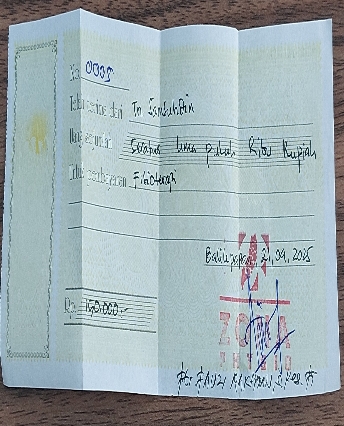 No. 0005
Telah terima dari Tn Samsuddin
Uang sejumlah Seratus lima puluh Ribu Rupiah
Untuk pembayaran Fisioterapi
Balikpapan, 21, 09, 2025
Rp. 150.000.-
ZONA
PHYSIO